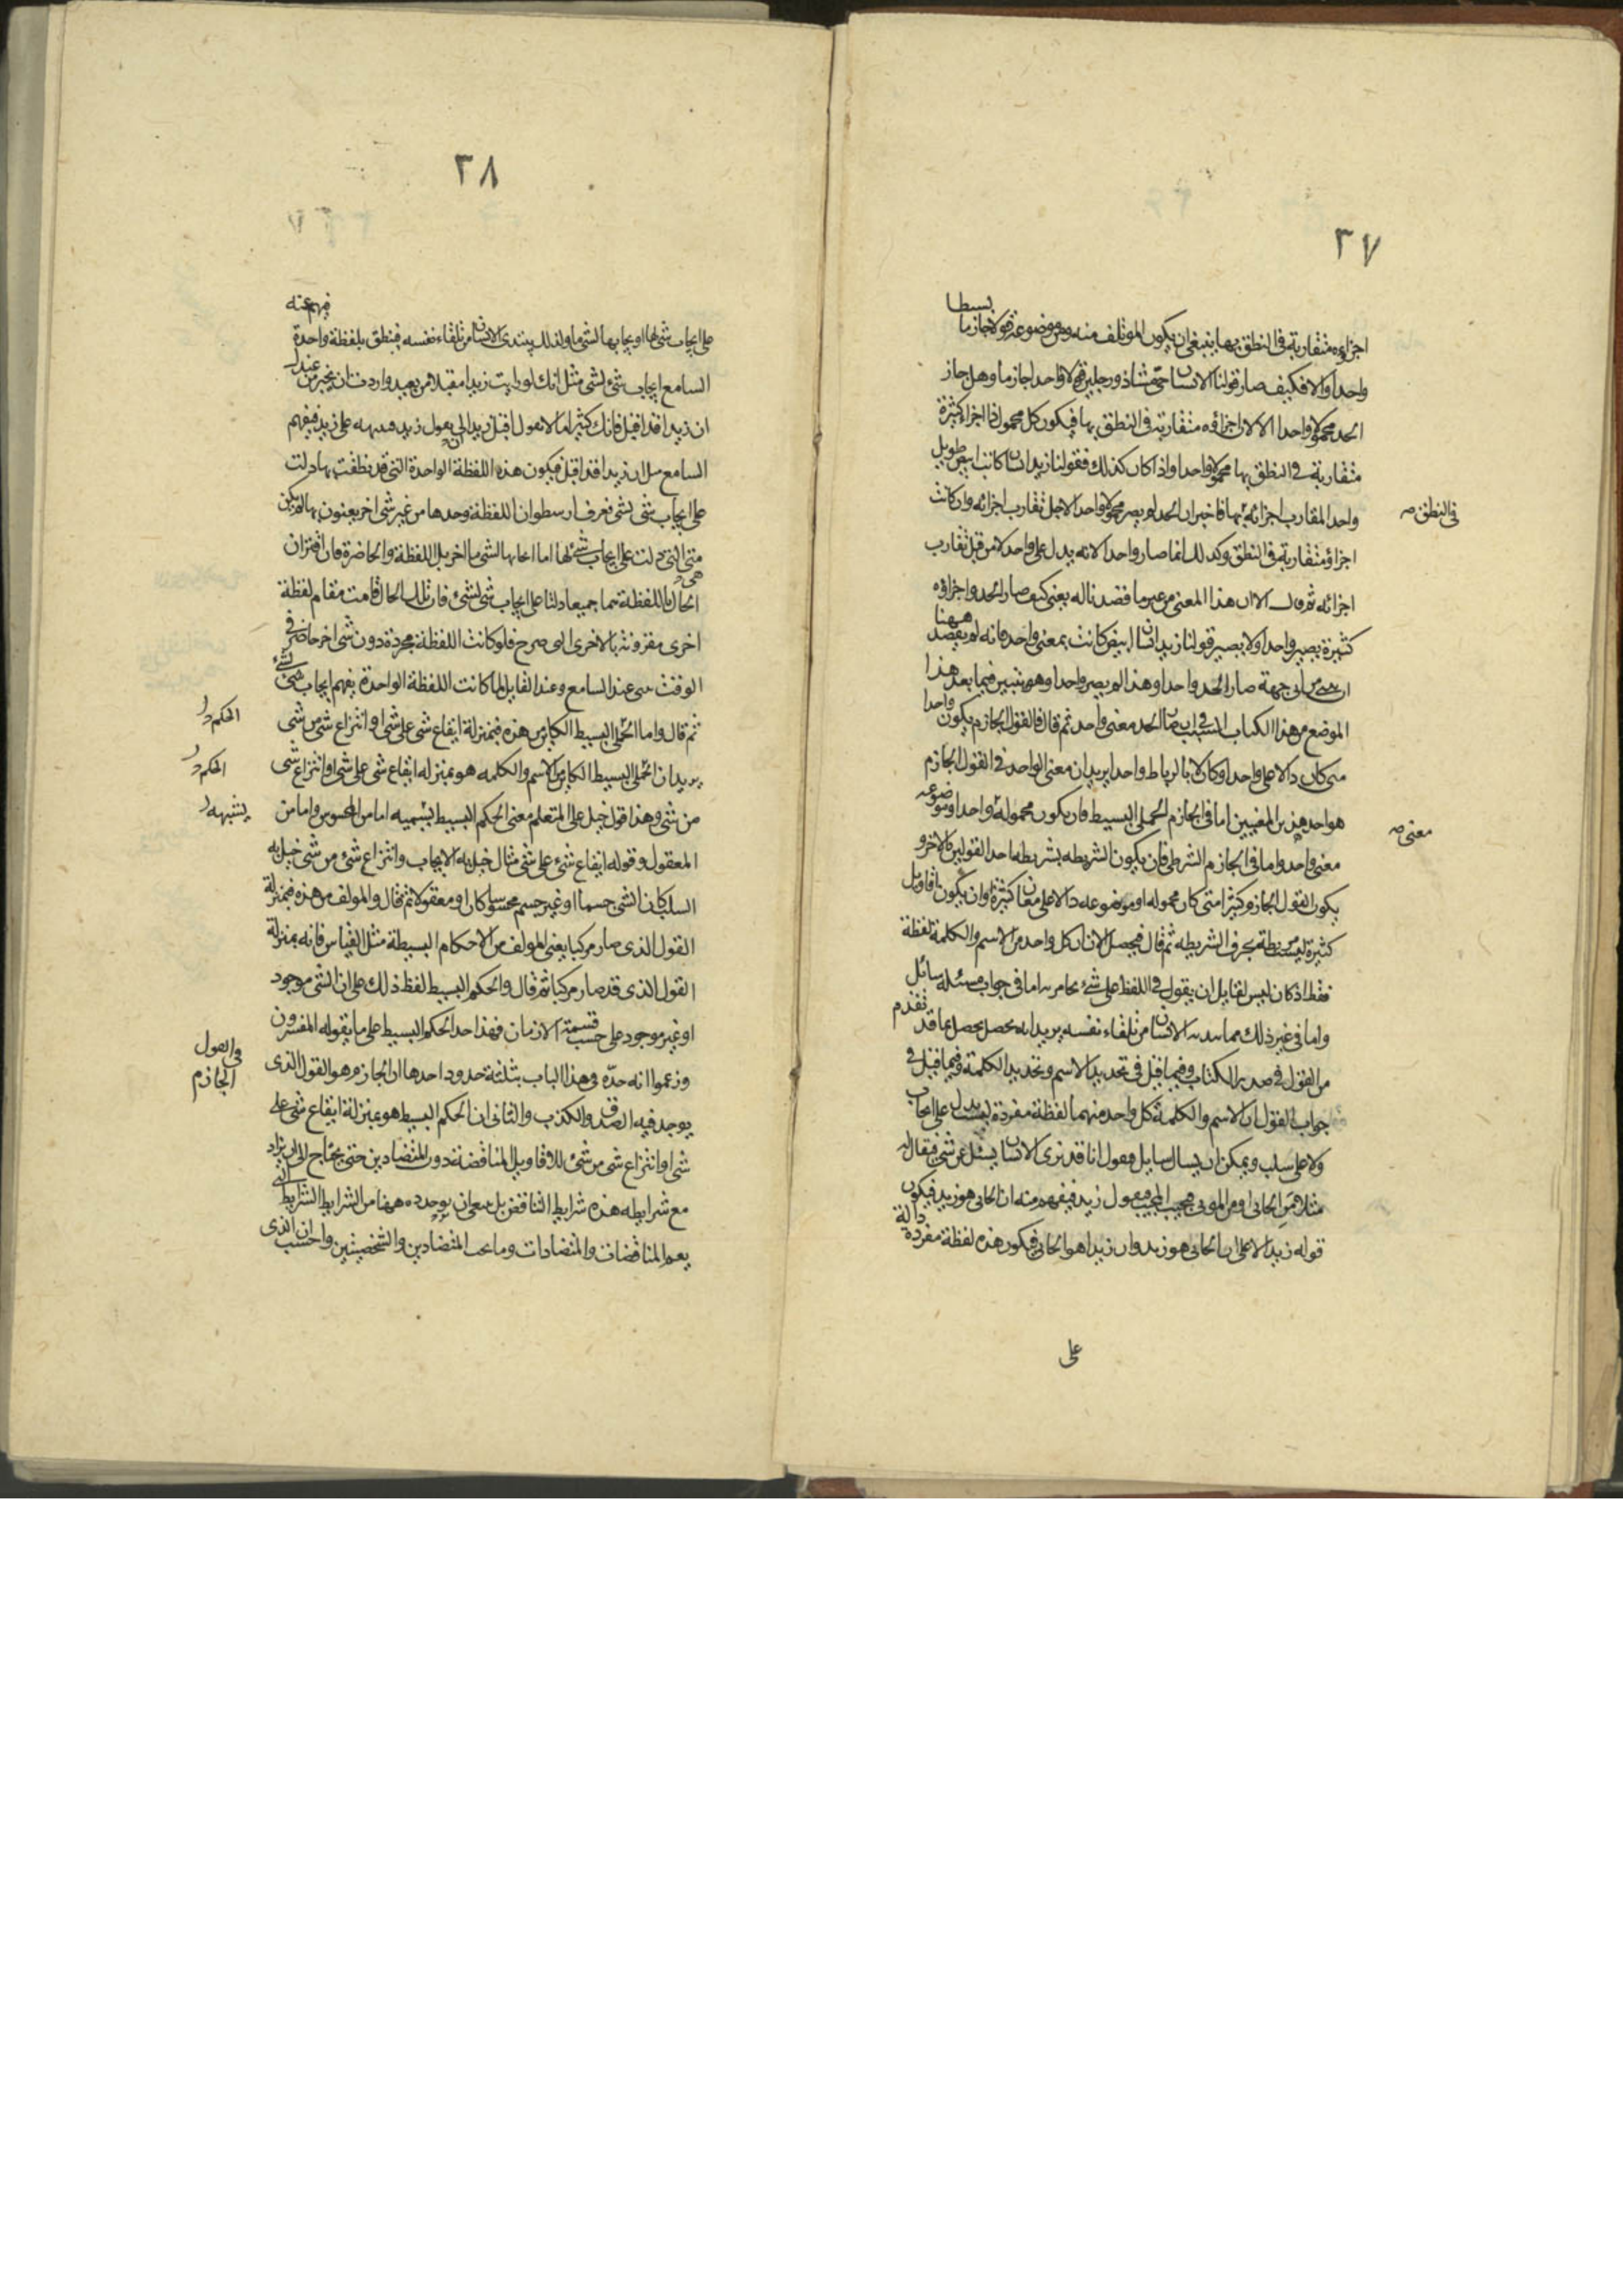 ٣٧
بسيطا
اجزاوه متقاربة في النطق بها ينبغي ان يكون المؤتلف منه ومن موضوعه قولا جازما
واحدا والا فكيف صار قولنا الانسان حي مشاء ذو رجلين قولا واحدا جازما وهل جاز
الحد محمولا واحدا الا لان اجزاؤه متقاربة في النطق بها فيكون كل محمول ذا اجزاء كثيرة
متقاربة في النطق بها محمولا واحدا واذا كان كذلك فقولنا زيد انسان كاتب ابيض طويل
واحد المقارب اجزائه بها فاخبر ان الحد لم يصر محمولا واحدا لاجل تقارب اجزائه وان كانت
في النطق صه
اجزاؤه متقاربة في النطق وكذلك انما صار واحدا لانه يدل على واحد لا من قبل تقارب
اجزائه ثم قال الا ان هذا المعنى من غير ما قصدنا له يعني كيف صار الحد واجزاؤه
كثيرة يصير واحدا ولا يصير قولنا زيد انسان ابيض كاتب بمعنى واحد فانه لم يقصد ههنا
ان من اي جهة صار الحد واحدا وهذا لم يصر واحدا وهو يتبين فيما بعد هذا
الموضع من هذا الكتاب ان الحد معنى واحد ثم قال فالقول الجازم يكون واحدا
متى كان دالا على واحد او كان بالرباط واحدا يريد ان معنى الواحد في القول الجازم
هو احد هذين المعنيين اما في الجازم الحملي البسيط فان يكون محموله واحدا وموضوعه
معنى صه
معنى واحد واما في الجازم الشرطي فان يكون الشريطه بشريطه احد القولين بالاخر و
يكون القول الجازم كثيرا متى كان محموله او موضوعه دالا على معان كثيرة او ان يكون اقاويل
كثيرة ليست مرتبطة بحرف الشريطه ثم قال فيحصل الان ان كل واحد من الاسم والكلمة لفظة
فقط اذ كان ليس لقايل ان يقول في اللفظ على شئ اما في جواب مسئلة سائل
واما في غير ذلك مما الانسان من تلقاء نفسه يريد انه يحصل عما قد تقدم
من القول في صدر الكتاب وفيما قيل في تحديد الاسم وتحديد الكلمة وفيما قيل في
جواب القول ان الاسم والكلمة كل واحد منهما لفظة مفردة ليست يدل على ايجاب
ولا على سلب ويمكن ان يسال سايل فيقول انا قد نرى الانسان يسئل عن شئ فيقال له
مثلا من الجاني او من الموتى فيجيب المجيب فيقول زيد فيفهم منه ان الجاني هو زيد فيكون
قوله زيد الا على ان الجاني هو زيد وان زيدا هو الجاني فيكون هذه لفظة مفردة دالة
على
٣٨
على ايجاب شئ لها او ايجابها لشئ ما وكذلك يبتدئ الانسان من تلقاء نفسه فينطق بلفظة واحدة فيفهم عنه
السامع ايجاب شئ لشئ مثل انك لو رايت زيدا مقبلا من بعيد واردت ان يخبر من عندك
ان زيدا قد اقبل فانك كثيرا ما لا تقول اقبل زيد الى يقول زيد على زيد فيفهم
السامع ان زيدا قد اقبل فيكون هذه اللفظة الواحدة التي قد نطقت بها دلت
على ايجاب شئ لشئ فعرف ارسطو ان اللفظة وحدها من غير شئ اخر يعنون بها لم يكن
متى التي دلت على ايجاب شئ لها اما لشئ ما اخر بل اللفظة والحاضرة فان اقتران
الحال باللفظة هما جميعا دلتا على ايجاب شئ لشئ فان تلك الحال قامت مقام لفظة
اخرى مقرونة بالاخرى التي صرح فلو كانت اللفظة مجردة دون شئ اخر حاضر في
الوقت عند السامع وعند القايل لما كانت اللفظة الواحدة يفهم ايجاب شئ لشئ
ثم قال واما الحملي البسيط الكاين من هذه فبمنزلة ايقاع شئ على شئ او انتزاع شئ من شئ
الحكم
يريد ان الحملي البسيط الكاين من الاسم والكلمه هو بمنزله ايقاع شئ على شئ او انتزاع شئ
الحكم
من شئ وهذا قول خيل على المتعلم معنى الحكم البسيط بتسميه اما من المحسوس واما من
يشبهه
المعقول وقوله ايقاع شئ على شئ مثال خيل به الايجاب وانتزاع شئ من شئ خيل به
السلب كان الشئ جسما او غير جسم محسوسا كان او معقولا ثم قال والمولف من هذه فبمنزلة
القول الذى صار مركبا يعني المولف من الاحكام البسيطة مثل القياس فانه بمنزلة
القول الذى قد صار مركبا ثم قال والحكم البسيط لفظ ذلك على ان الشئ موجود
او غير موجود على حسب قسمة الازمان فهذا حد الحكم البسيط على ما يقوله المفسرون
وزعموا انه حده في هذا الباب بثلثة حدود احدها ان الجازم هو القول الذى
في القول الجازم
يوجد فيه الصدق والكذب والثاني ان الحكم البسيط هو بمنزلة ايقاع شئ على
شئ او انتزاع شئ من شئ للاقاويل المناقضة دون المتضادين حتى يحتاج الى ان يزاد
مع شرايطه هذه شرايط التناقض بل ينبغي ان يوجد ههنا من الشرايط الشرايط التي
يعم المناقضات والمتضادات وما تحت المتضادين والشخصيتين واحسب ان الذى